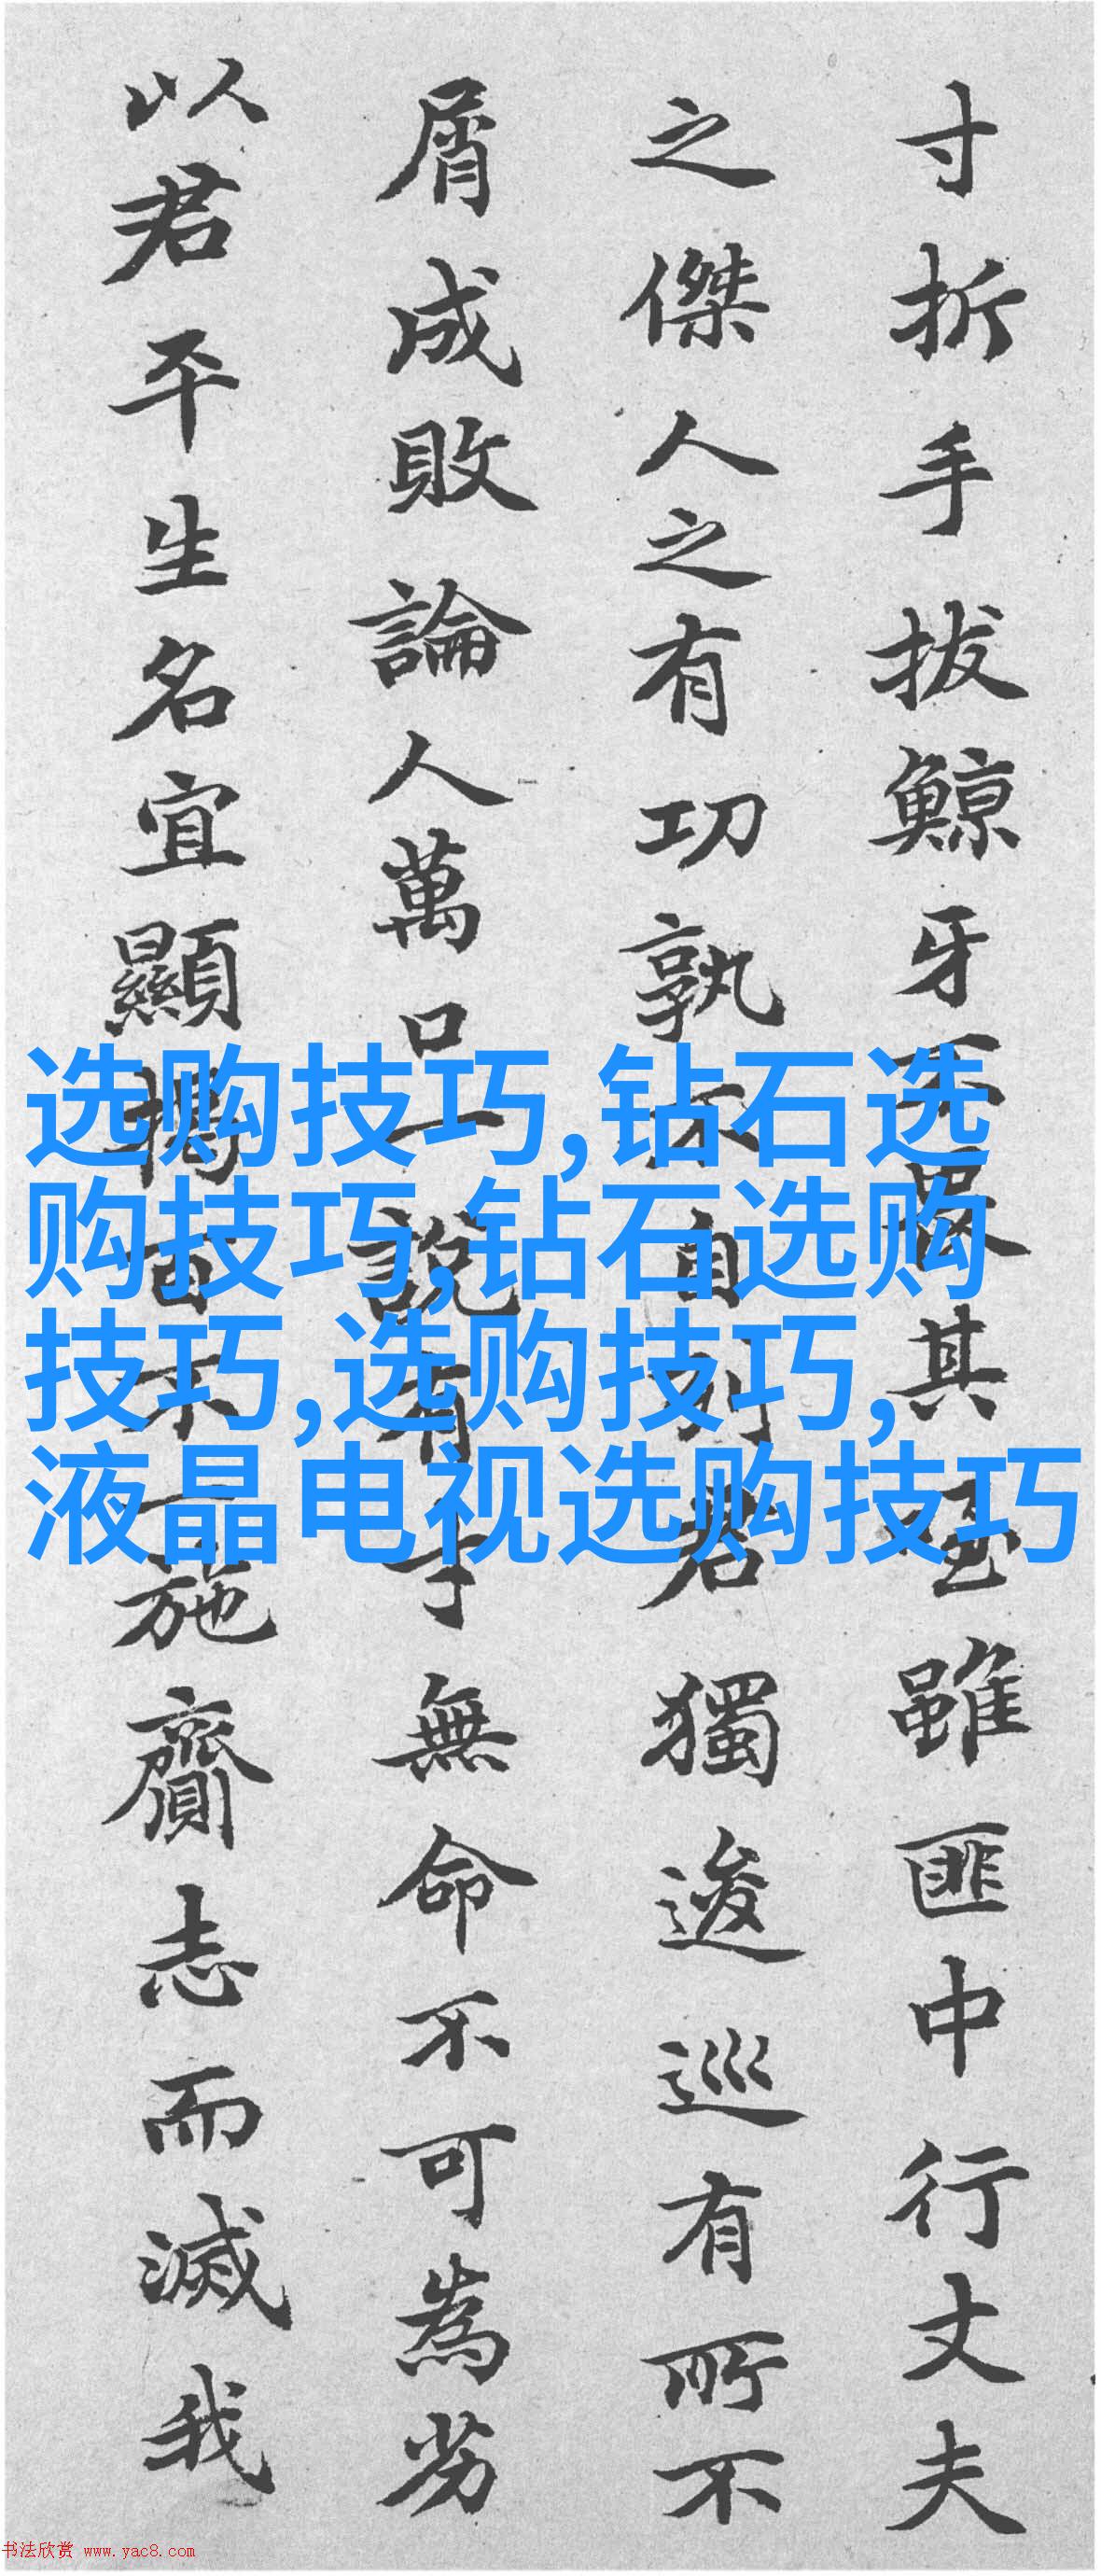 选购技巧,钻石选
购技巧,钻石选购
技巧,选购技巧,
液晶电视选购技巧
寸折手拔鯨牙不畏其雖匪中行丈夫
之傑人之有功孰不自列君獨逡巡有所不
屑成敗論人萬口一說有才無命不可為劣
以君平生名宜顯揭百不一施齎志而滅我
书法欣赏 www.yac8.com